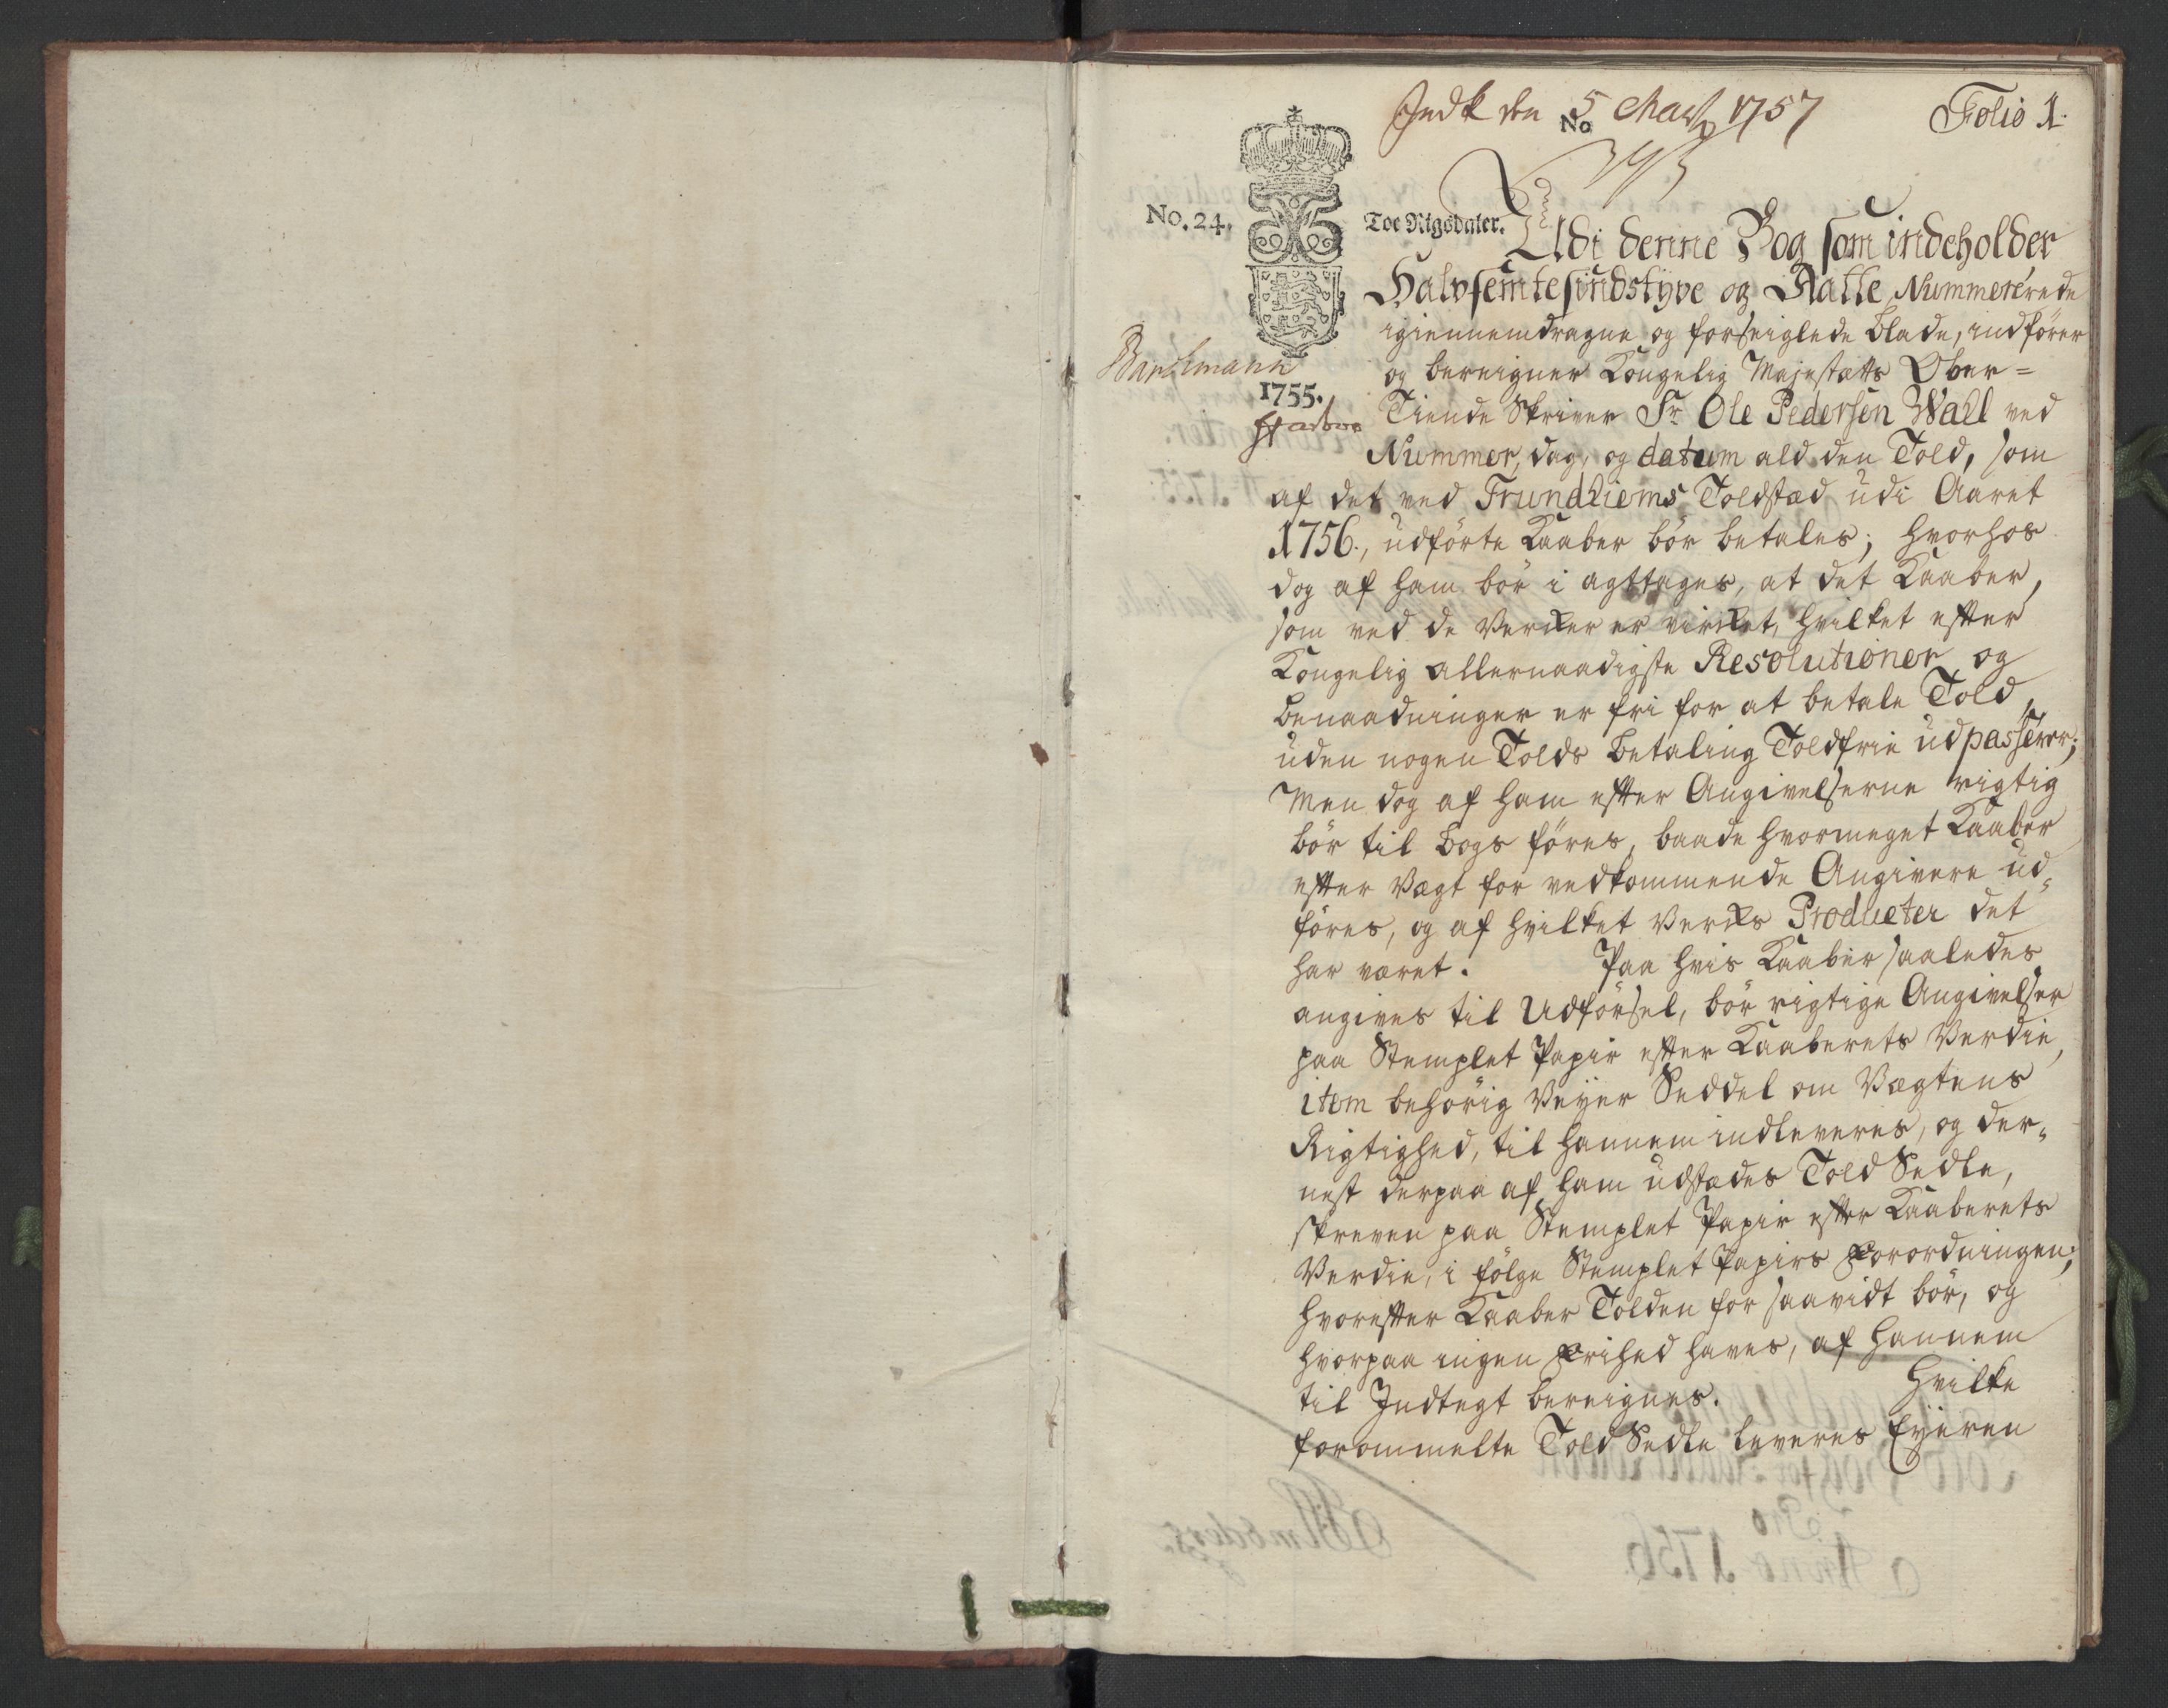 Indk den 5 Marty 1757
No
Folio 1.
No. 24,
Toe Rigsdaler.
Udi denne Bog som indeholder
Halvfemtesindstyve og Aatte Nummererede
igiennemdragne og forseiglede Blade, indfører
og bereigner Kongelig Majestætts Ober=
Bartemann
1755.
Tiende Skriver Sr. Ole Pedersen Wall ved
Nummer, dag, og datum ald den Told, som
af det ved Trundhiems Toldstæd udi Aaret
1756., udførte Kaaber bør betales; hvorhos
dog af ham bør i agttages, at det Kaaber,
som ved de Verker er virket, hvilket efter
Kongelig allernaadigste Resolutioner og
Benaadninger er fri for at betale Told,
uden nogen Tolds betaling Toldfrie udpasserer;
Men dog af ham efter Angivelserne rigtig
bør til Bogs føres, baade hvormeget Kaaber
efter Vægt for vedkommende Angivere ud-
føres, og af hvilket Verks Producter det
har været. Paa hvis Kaaber saaledes
angives til Udførsel, bør rigtige Angivelser
paa Stemplet Papir efter Kaaberets Verdie,
item behørig Veyer Seddel om Vægtens
Rigtighed, til hannem indleveres, og der-
nest derpaa af ham udstædes Told Sedle,
skreven paa Stemplet Papir efter Kaaberets
Verdie, i følge Stemplet Papirs Forordningen;
hvorefter Kaaber Tolden for saavidt bør, og
hvorpaa ingen Frihed haves, af hannem
til Indtegt bereignes. Hvilke
forommelte Told Sedle leveres Eyeren